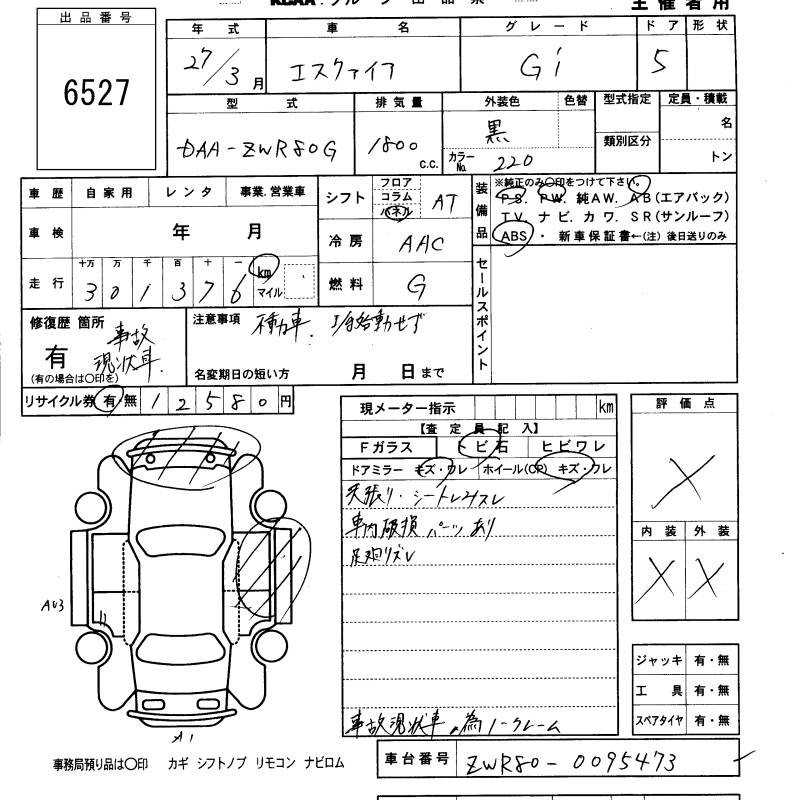 出品番号
6527
年式 車名 グレード ドア 形状
27/3月 エスクァイア Gi 5
型式 排気量 外装色 色替 型式指定 定員・積載
DAA-ZWR80G 1800 c.c. 黒 カラーNo. 220 類別区分 名 トン
車歴 自家用 レンタ 事業.営業車
車検 年 月
走行 十万 万 千 百 十 一
3 0 1 3 7 6 km マイル
シフト フロア コラム パネル AT
冷房 AAC
燃料 G
装備品 ※純正のみ〇印をつけて下さい。
P.S. P.W. 純A.W. A.B(エアバック)
T.V. ナビ. カワ. S.R(サンルーフ)
ABS ・ 新車保証書←(注) 後日送りのみ
セールスポイント
修復歴 箇所
有 事故現状車
(有の場合は〇印を)
注意事項 不動車.
名変期日の短い方 月 日まで
リサイクル券 有 無 12580円
現メーター指示 km
【査定員記入】
Fガラス トビ石 ヒビワレ
ドアミラー キズ・ワレ ホイール(CP) キズ・ワレ
天張り・シート
車内破損 パーツあり
足廻りズレ
事故現状車の為ノークレーム
評価点
X
内装 外装
X X
ジャッキ 有・無
工具 有・無
スペアタイヤ 有・無
AU3
A1
事務局預り品は〇印 カギ シフトノブ リモコン ナビロム
車台番号 ZWR80-0095473